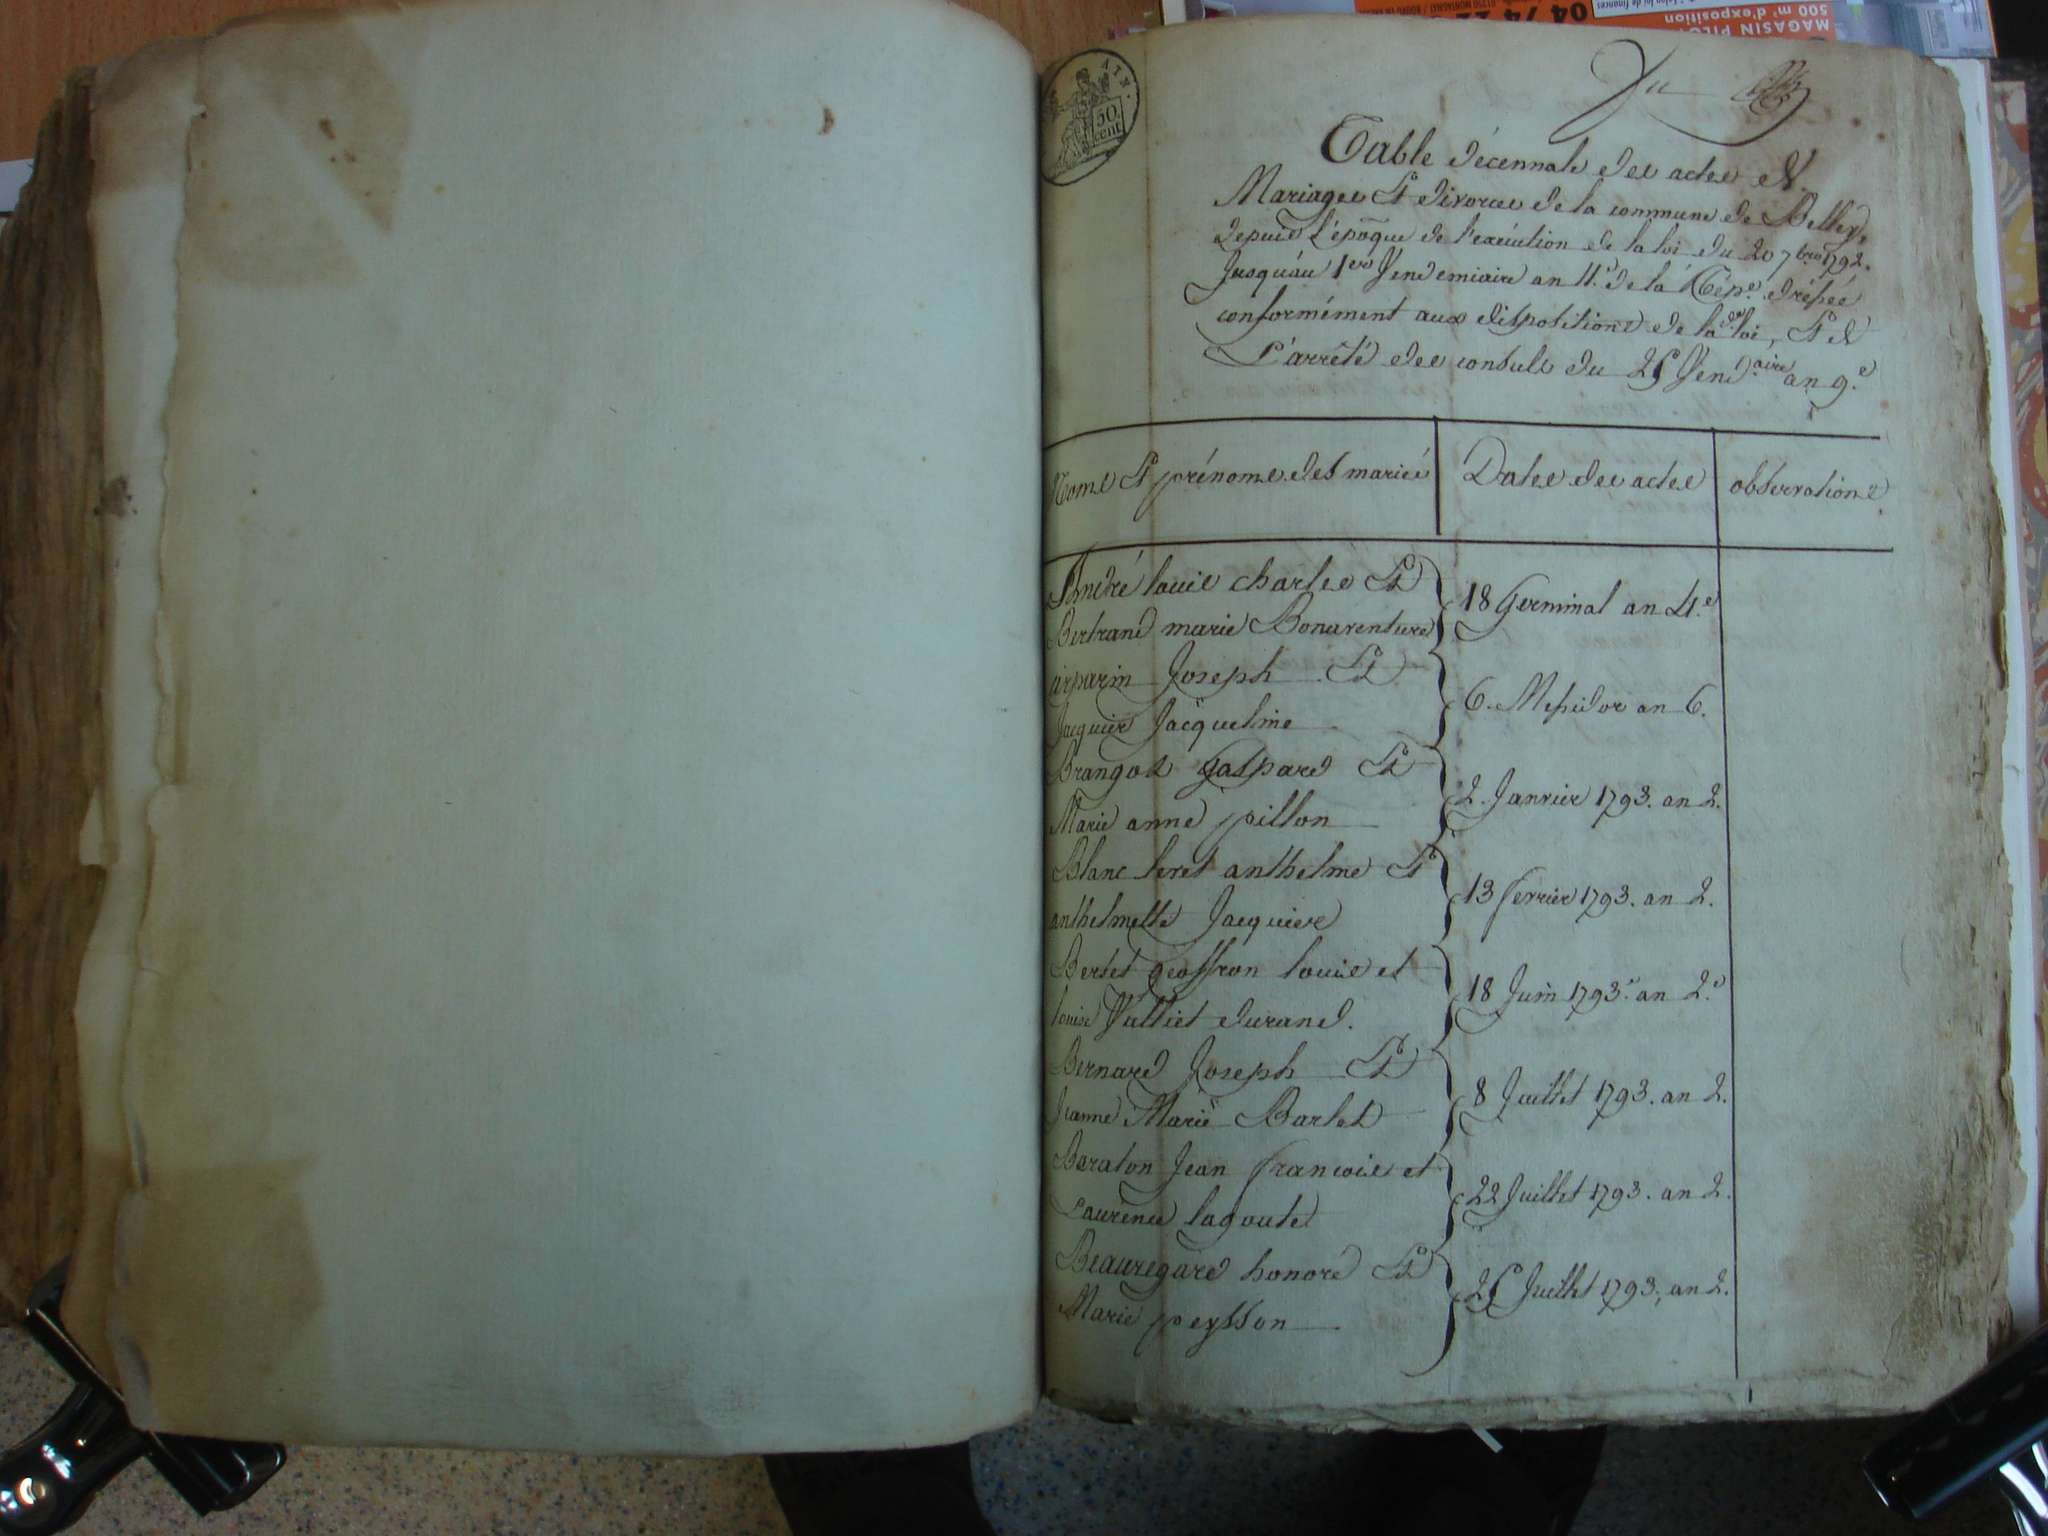 04 74 22
01250 MONTAGNAT / BOURG EN
selon loi de finances
MAGASIN PILO
500 m² d'exposition
AIN.
50.
cent
Vu
Table décennale des actes de
Mariages Et divorces de la commune de Belley,
depuis L'époque de l'exécution de la loi du 20 7bre 1792.
Jusqu'au 1er Vendemiaire an 11.e de la Rép.e dressée
conformément aux dispositions de la dte loi, Et de
L'arrêté des consuls du 25 Vend.aire an 9.e
Noms Et prénoms des mariés
Dates des actes
observations
André louis charles Et
Bertrand marie Bonaventure
18 Germinal an 4.e
arparin Joseph Et
Jacquier Jacqueline
6. Messidor an 6.
Brangod gaspard Et
Marie anne pillon
2. Janvier 1793. an 2.
Blanc feret anthelme Et
anthelmette Jacquier
13 fevrier 1793. an 2.
Bertet geoffron louis et
louise Vulliet durand.
18 Juin 1793. an 2.e
Bernard Joseph Et
Jeanne Marie Barlet
8 Juillet 1793. an 2.
Baraton Jean francois et
Laurence lagoute
22 Juillet 1793. an 2.
Beauregard honoré Et
Marie peysson
25 Juillet 1793, an 2.